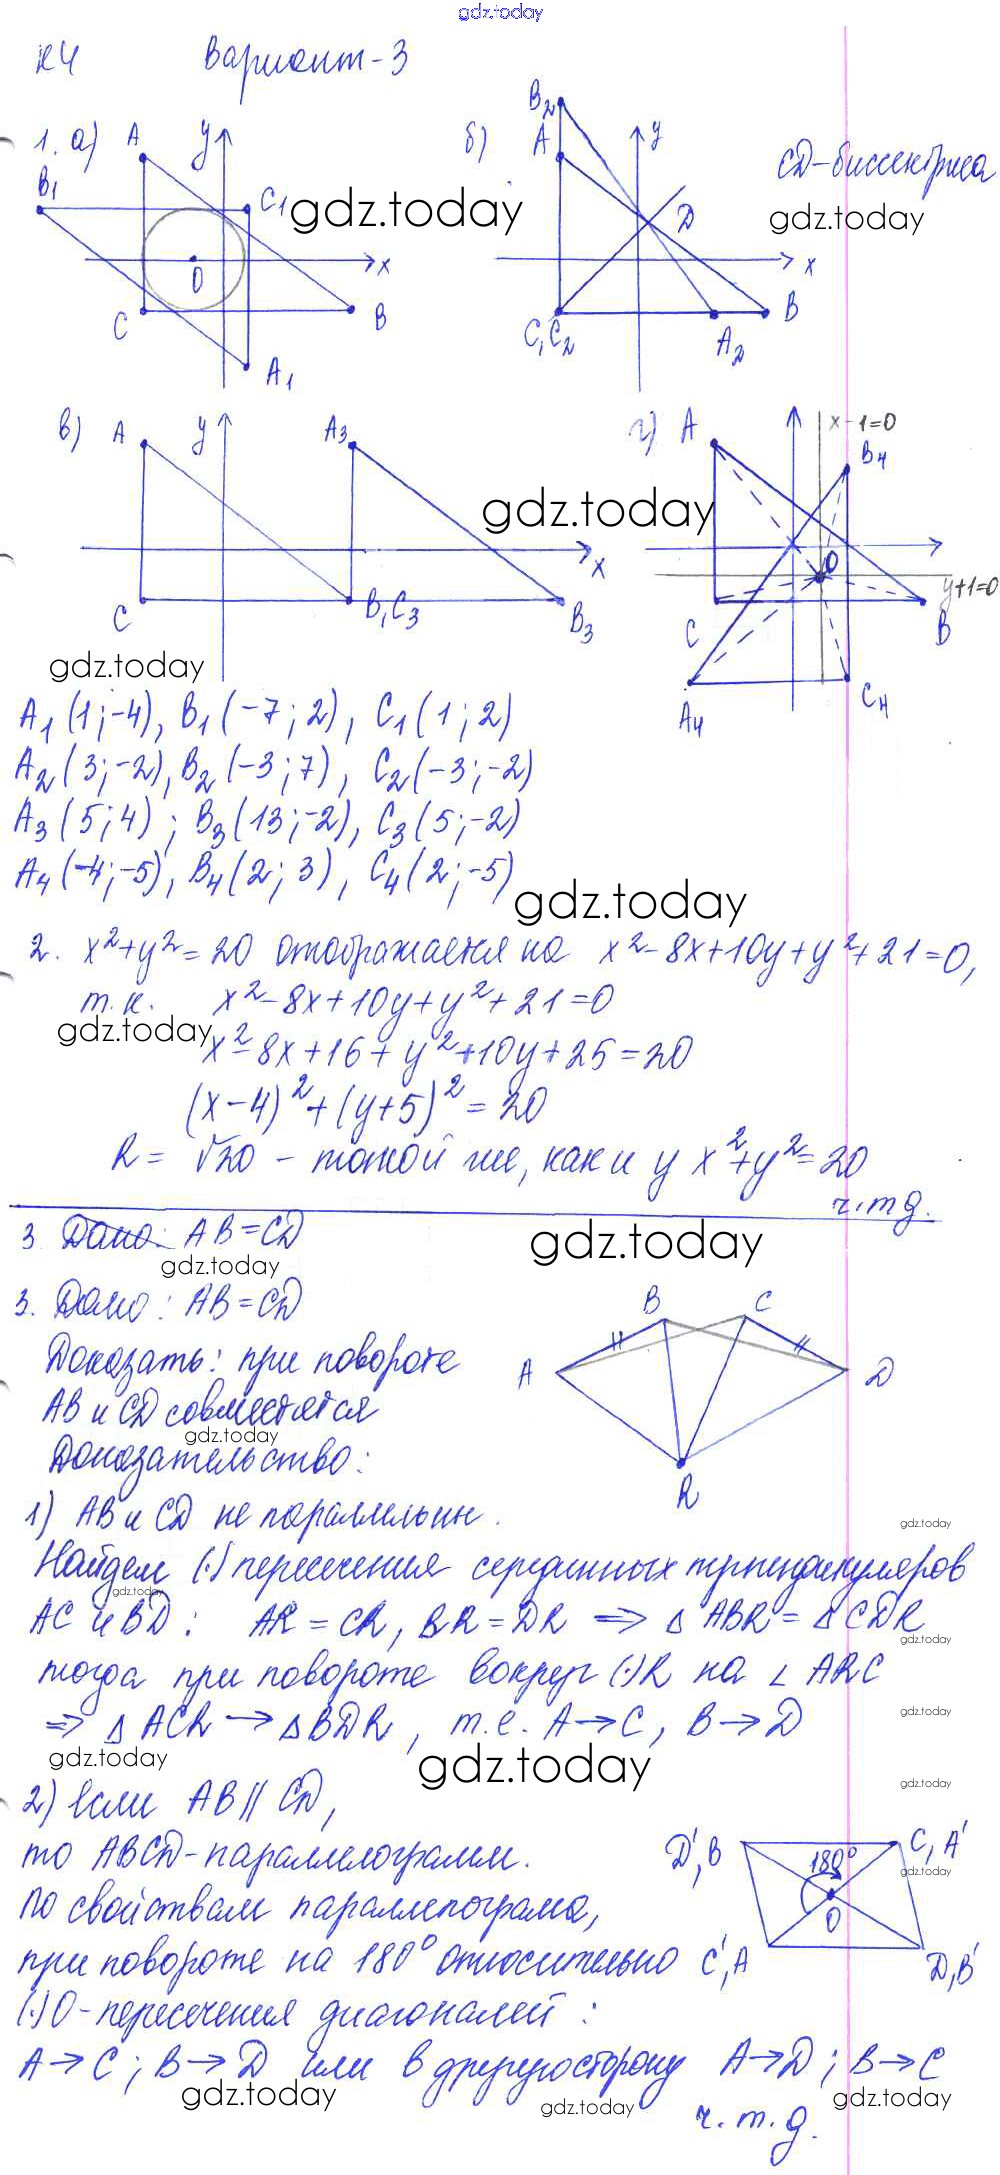 gdz.today
К4 Вариант-3
1. а) A y B1 C1 x O C B A1
б) B2 A y D x C, C2 B A2
CD-биссектриса
gdz.today
gdz.today
в) A y A3 x C B, C3 B3
г) A x-1=0 B4 O y+1=0 C B A4 C4
gdz.today
gdz.today
A1 (1;-4), B1 (-7; 2), C1 (1; 2)
A2 (3;-2), B2 (-3; 7), C2 (-3;-2)
A3 (5; 4) ; B3 (13;-2), C3 (5;-2)
A4 (-4;-5), B4 (2; 3), C4 (2;-5)
gdz.today
2. x²+y²=20 отображается на x²-8x+10y+y²+21=0,
т.к. x²-8x+10y+y²+21=0
gdz.today
x²-8x+16+y²+10y+25=20
(x-4)²+(y+5)²=20
R= √20 - такой же, как и у x²+y²=20
ч.т.д.
3. Дано: AB=CD
gdz.today
gdz.today
3. Дано: AB=CD
B C A D R
Доказать: при повороте
AB и CD совместятся
gdz.today
Доказательство:
1) AB и CD не параллельны.
gdz.today
Найдем (·) пересечения серединных перпендикуляров
gdz.today
AC и BD: AR=CR, BR=DR ⇒ △ ABR=△CDR
gdz.today
тогда при повороте вокруг (·)R на ∠ ARC
⇒ △ ACR → △BDR, т.е. A→C, B→D
gdz.today
gdz.today
gdz.today
gdz.today
2) Если AB || CD,
то ABCD-параллелограмм.
D',B C,A' 180° O C',A D,B'
gdz.today
По свойствам параллелограма,
при повороте на 180° относительно
(·)O-пересечения диагоналей:
A→C; B→D или в другую сторону A→D; B→C
gdz.today
gdz.today
gdz.today
ч.т.д.